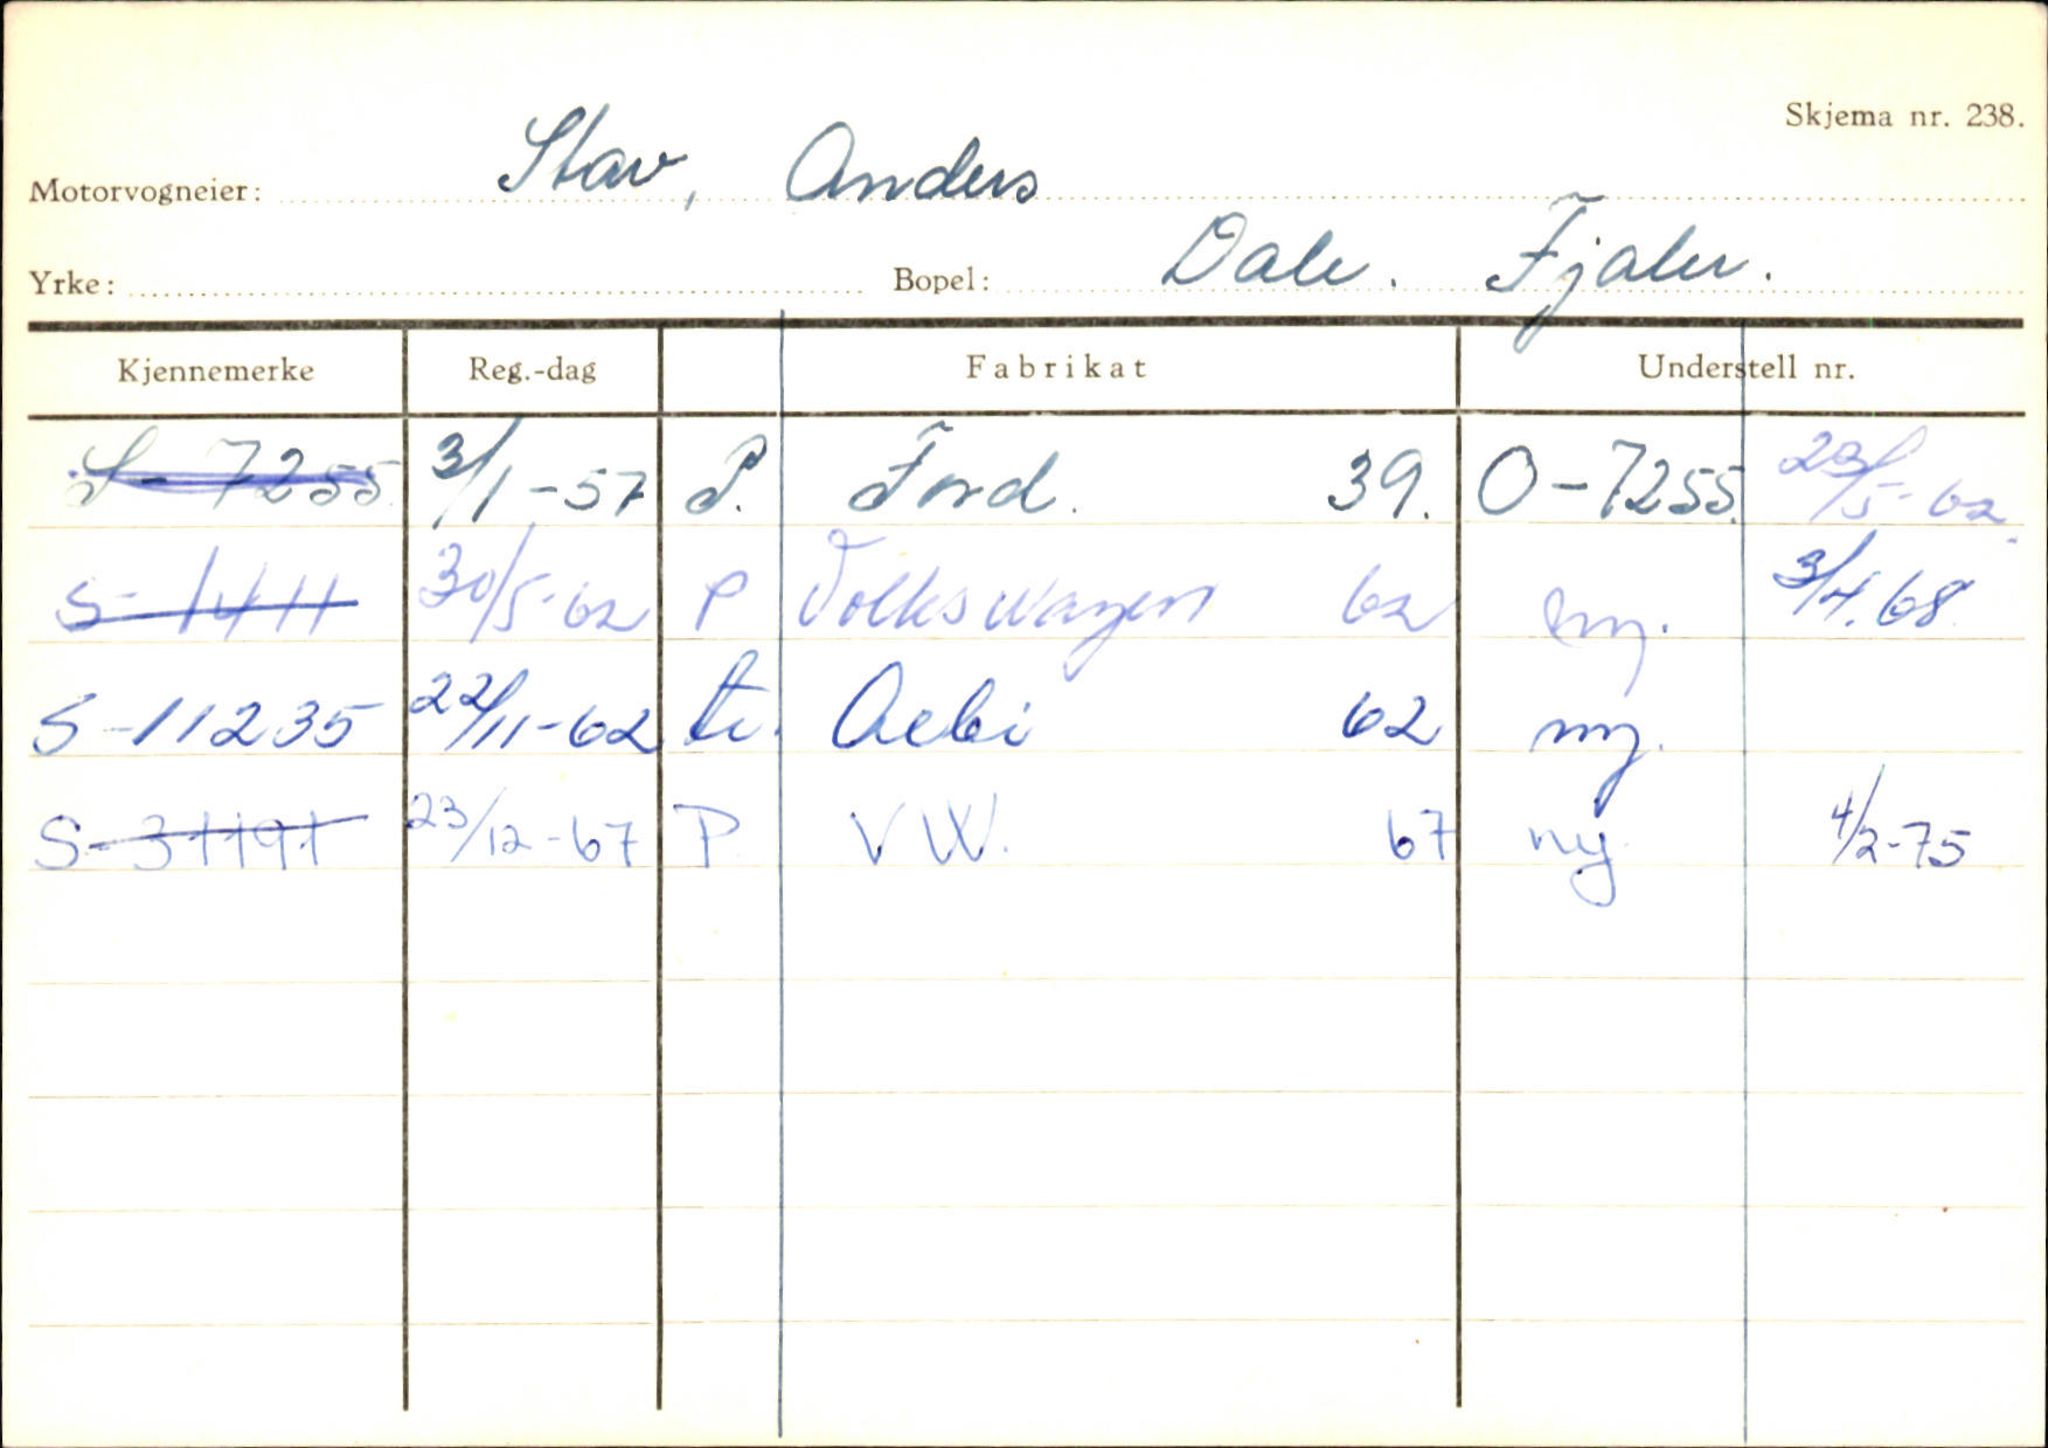 Skjema nr. 238.
Motorvogneier: Stav, Anders
Yrke: Bopel: Dale. Fjaler.
Kjennemerke Reg.-dag Fabrikat Understell nr.
S-7255 3/1-57 P. Ford. 39. O-7255. 23/5-62.
S-1411 30/5-62 P Volkswagen 62 ny. 3/4.68
S-11235 22/11-62 tr. Aebi 62 ny.
S-31191 23/12-67 P VW. 67 ny 4/2-75